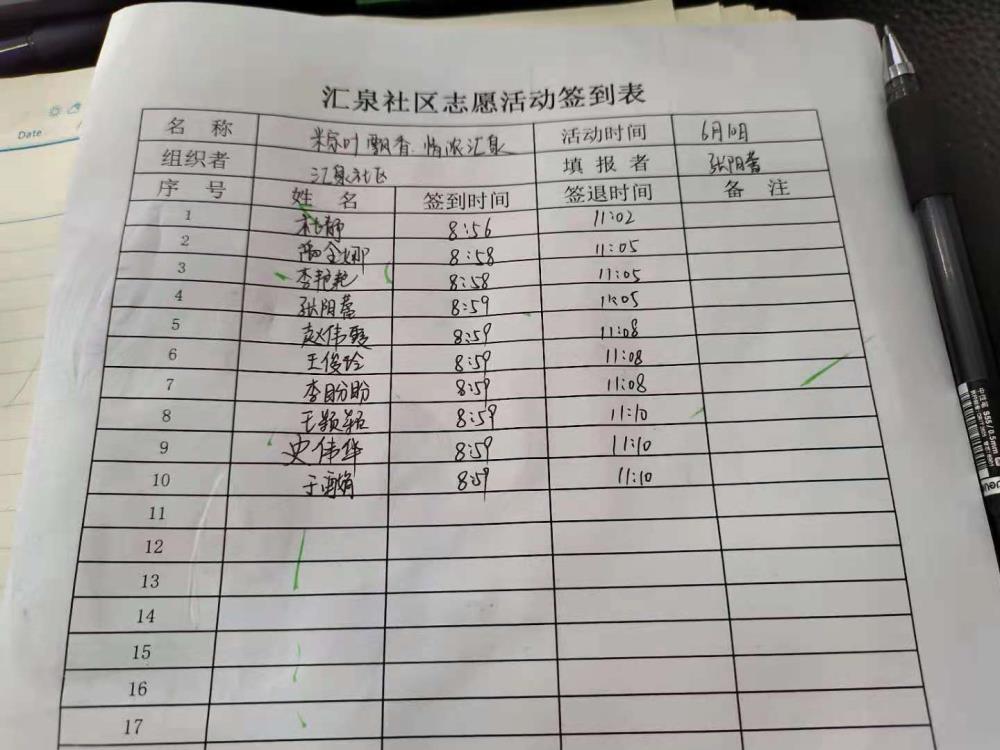 汇泉社区志愿活动签到表
名 称 粽叶飘香 情浓汇泉 活动时间 6月10日
组织者 汇泉社区 填报者 张阳蕾
序 号 姓 名 签到时间 签退时间 备 注
1 杜静 8:56 11:02
2 8:58 11:05
3 李艳艳 8:58 11:05
4 张阳蕾 8:59 11:05
5 赵伟 8:59 11:08
6 王俊玲 8:59 11:08
7 李盼盼 8:59 11:08
8 王颖颖 8:59 11:10
9 史伟华 8:59 11:10
10 于海娟 8:59 11:10
11
12
13
14
15
16
17
Date
中性笔 S55/0.5mm